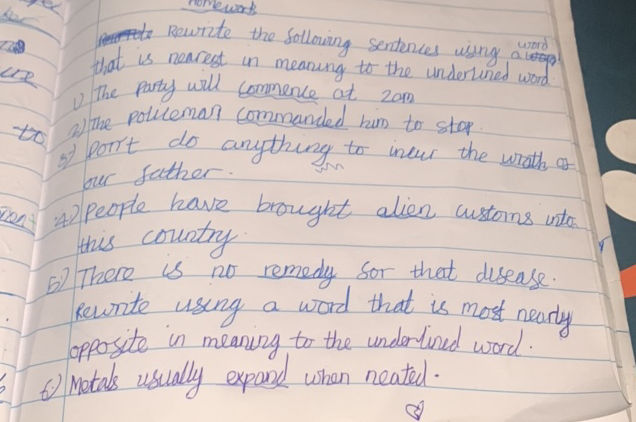 Homework
Rewrite the following sentences using a word
that is nearest in meaning to the underlined word
1) The party will commence at 2am
2) The policeman commanded him to stop.
3) Don't do anything to incur the wrath of
our father.
4) People have brought alien customs into
this country.
5) There is no remedy for that disease.
Rewrite using a word that is most nearly
opposite in meaning to the underlined word.
6) Metals usually expand when heated.